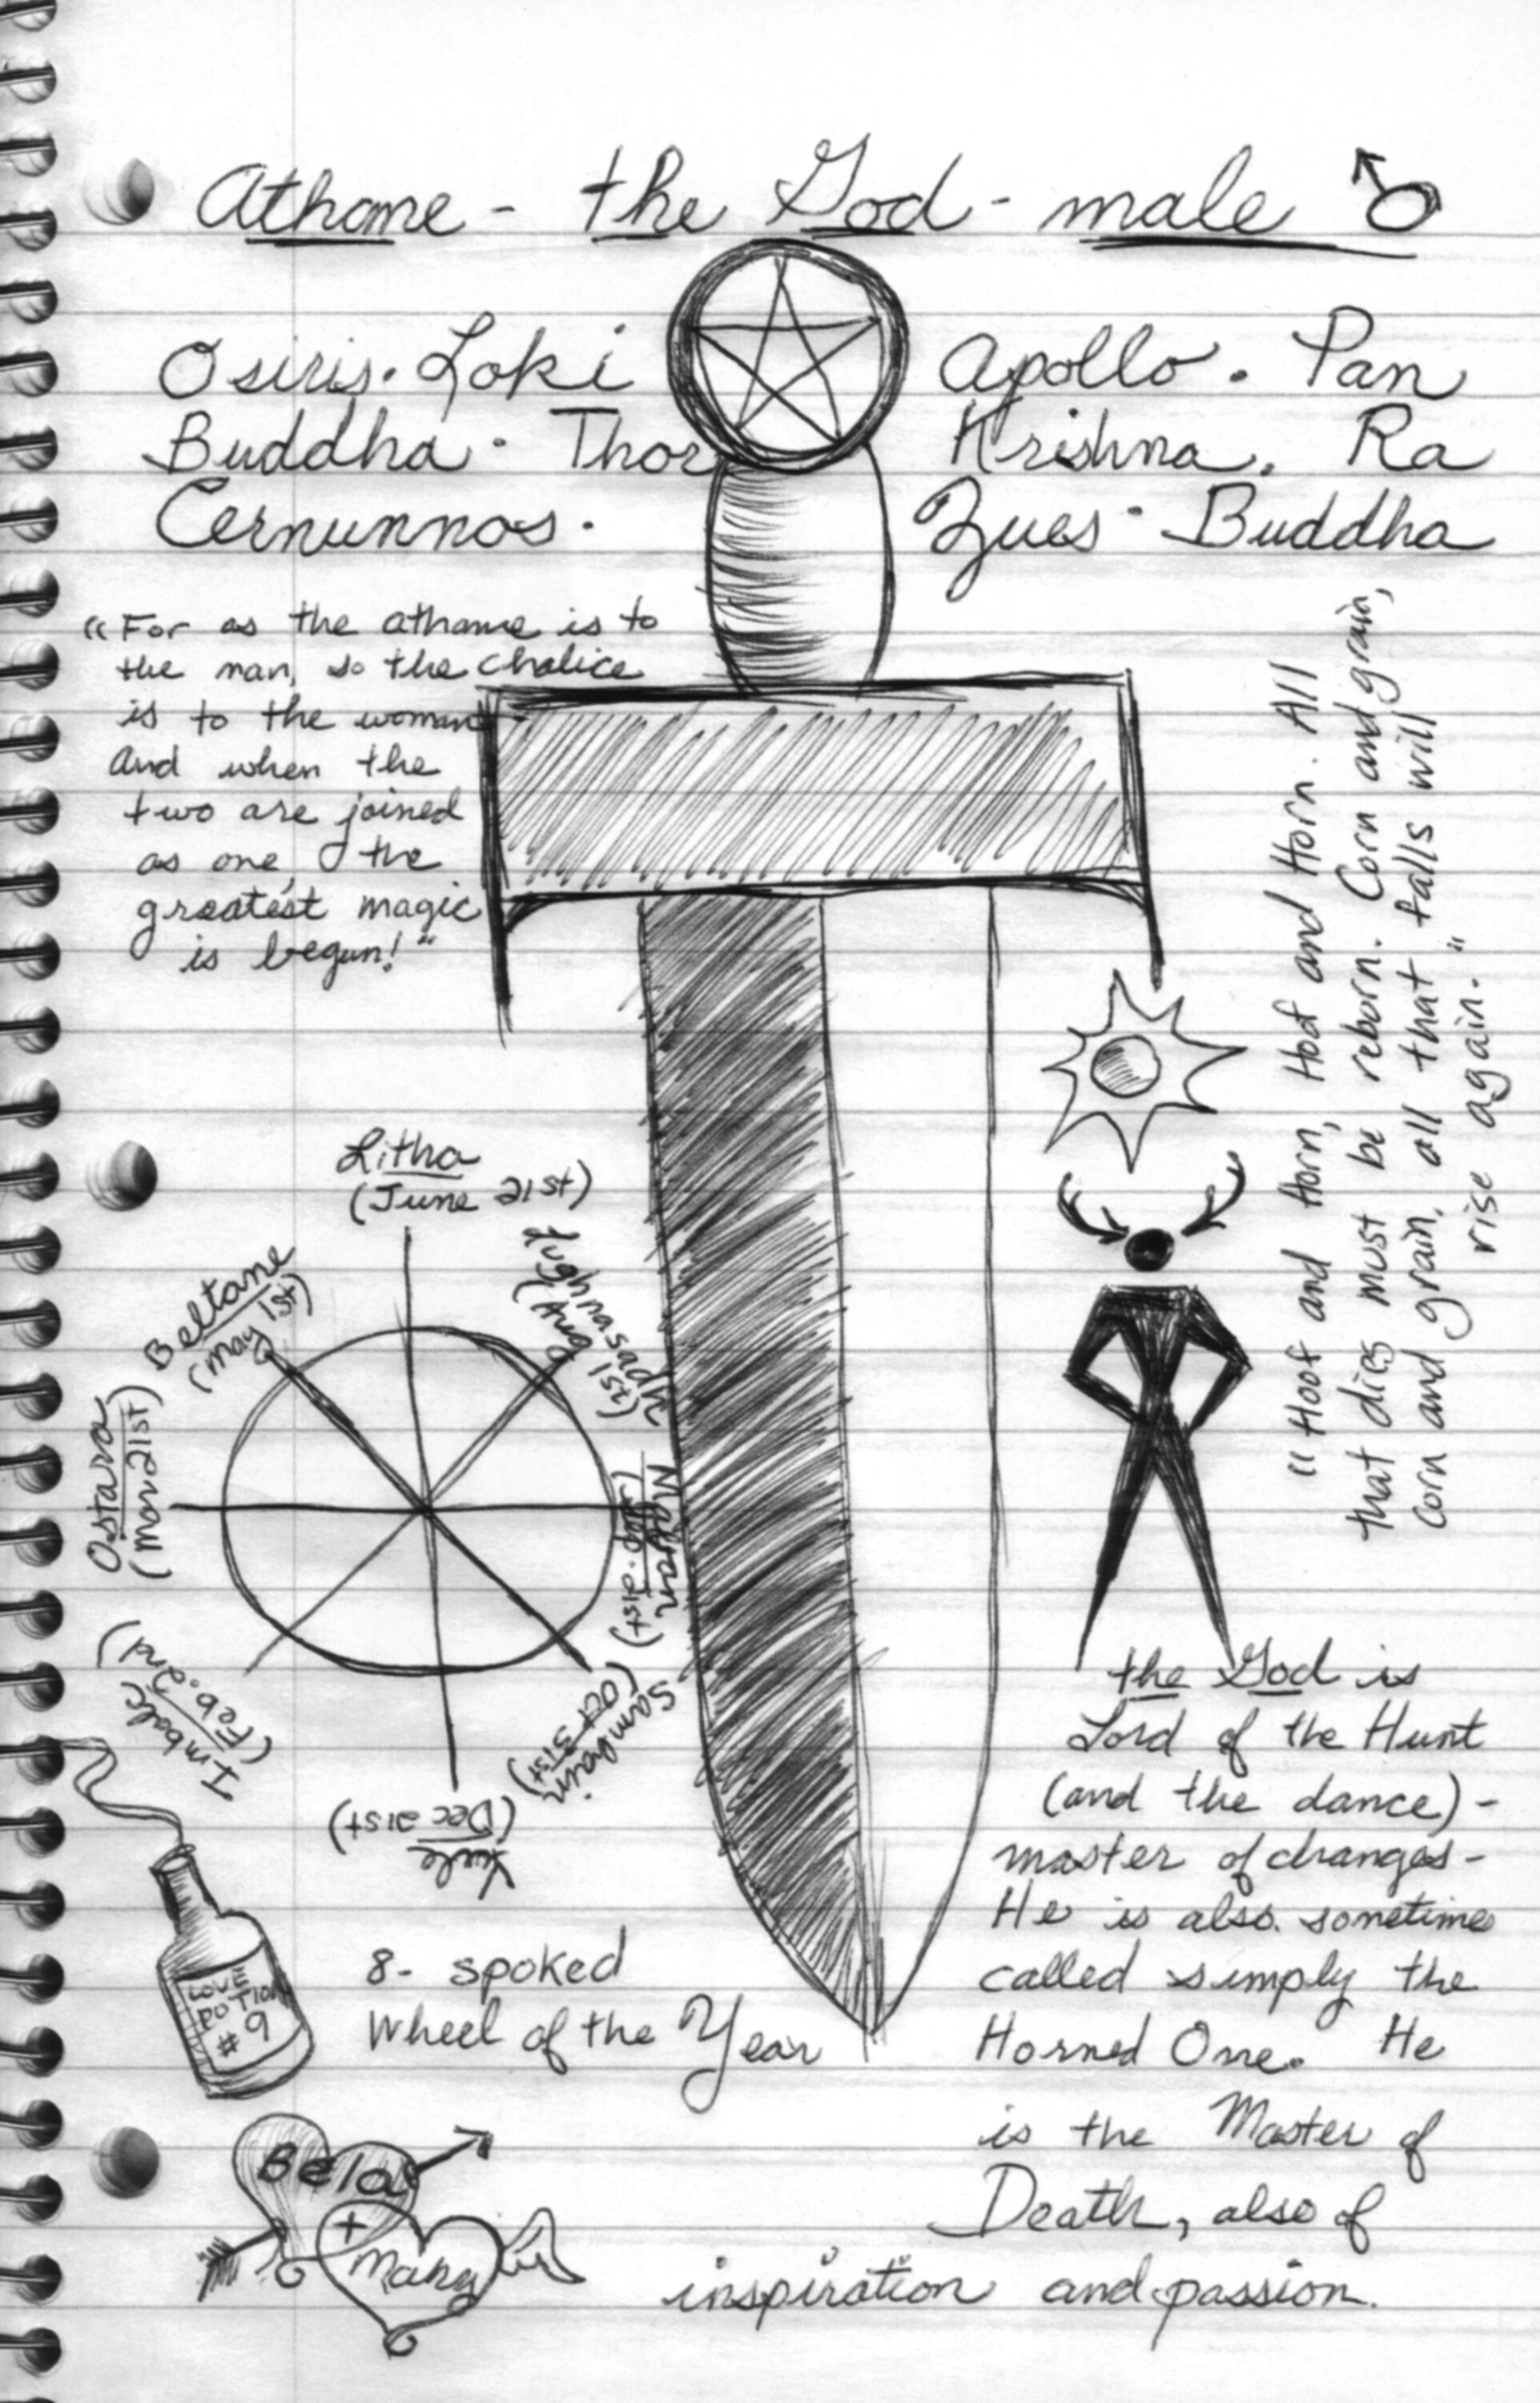 Athame - the God - male ♂
Osiris · Loki
Buddha · Thor
Cernunnos ·
Apollo · Pan
Krishna · Ra
Zues · Buddha
"For as the athame is to
the man, so the chalice
is to the woman
and when the
two are joined
as one, the
greatest magic
is begun!"
"Hoof and Horn, Hoof and Horn. All
that dies must be reborn. Corn and grain,
Corn and grain, all that falls will
rise again."
Litha
(June 21st)
Lughnasadh
(Aug 1st)
Mabon
(Sep. 21st)
Samhain
(Oct 31st)
Yule
(Dec 21st)
Imbolc
(Feb. 2nd)
Ostara
(Mar 21st)
Beltane
(May 1st)
8- spoked
Wheel of the Year
the God is
Lord of the Hunt
(and the dance) -
master of changes -
He is also sometime
called simply the
Horned One. He
is the Master of
Death, also of
inspiration and passion.
LOVE
POTION
# 9
Bela
+